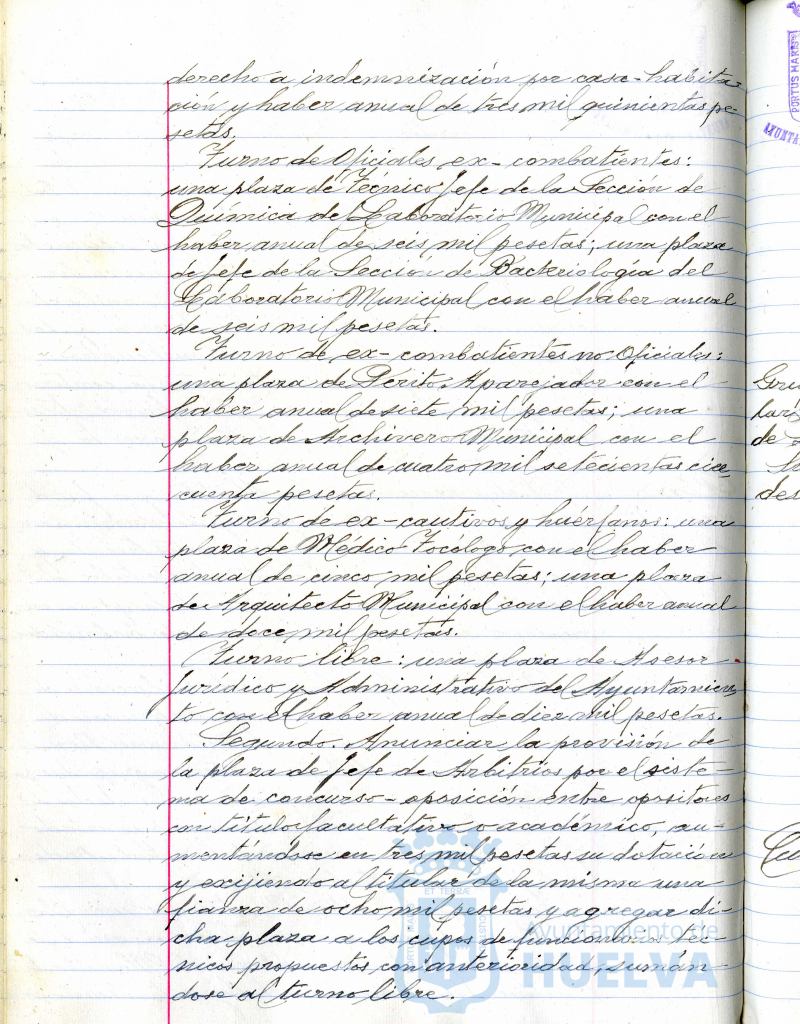 derecho a indemnización por casa-habita-
ción y haber anual de tres mil quinientas pe-
setas.
Turno de Oficiales ex-combatientes:
una plaza de Técnico Jefe de la Sección de
Química de Laboratorio Municipal con el
haber anual de seis mil pesetas; una plaza
de Jefe de la Sección de Bacteriología del
Laboratorio Municipal con el haber anual
de seis mil pesetas.
Turno de ex-combatientes no Oficiales:
una plaza de Perito Aparejador con el
haber anual de siete mil pesetas; una
plaza de Archivero Municipal con el
haber anual de cuatro mil setecientas cin-
cuenta pesetas.
Turno de ex-cautivos y huérfanos: una
plaza de Médico Tocólogo con el haber
anual de cinco mil pesetas; una plaza
de Arquitecto Municipal con el haber anual
de doce mil pesetas.
Turno libre: una plaza de Asesor
Jurídico y Administrativo del Ayuntamien-
to con el haber anual de diez mil pesetas.
Segundo. Anunciar la provisión de
la plaza de Jefe de Arbitrios por el siste-
ma de concurso-oposición entre opositores
con título facultativo o académico, au-
mentándose en tres mil pesetas su dotación
y exijiendo al titular de la misma una
fianza de ocho mil pesetas y agregar di-
cha plaza a los cupos de funcionarios téc-
nicos propuestos con anterioridad, sumán-
dose al turno libre.
Ayuntamiento de
HUELVA
PORTUS MARIS
de
des